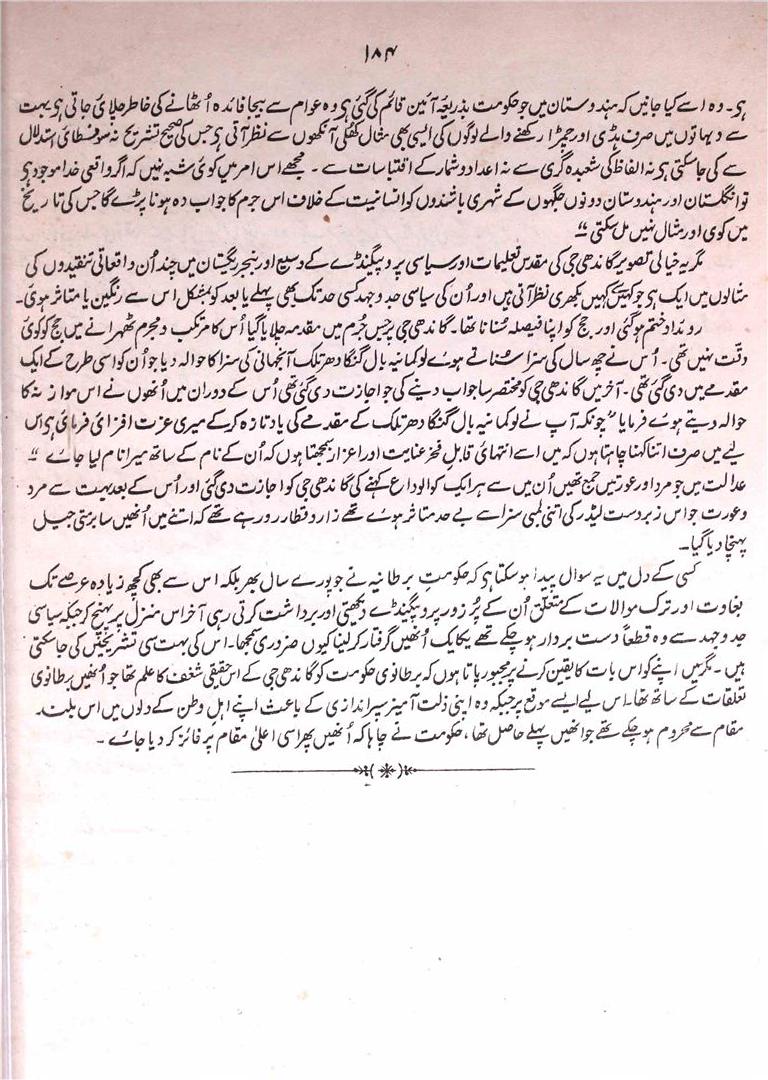 ۱۸۴
ہی۔ وہ اسے کیا جانیں کہ ہندوستان میں جو حکومت بذریعۂ آئین قائم کی گئی ہی وہ عوام سے بیجا فائدہ اُٹھانے کی خاطر چلائی جاتی ہی بہت
سے دیہاتوں میں صرف ہڈی اور چمڑا رکھنے والے لوگوں کی ایسی بھی مثال کھُلی آنکھوں سے نظر آتی ہی جس کی صحیح تشریح نہ سوفسطائی استدلال
سے کی جاسکتی ہی نہ الفاظ کی شعبدہ گری سے نہ اعداد و شمار کے اقتباسات سے۔ مجھے اس امر میں کوئی شبہ نہیں کہ اگر واقعی خدا موجود ہی
تو انگلستان اور ہندوستان دونوں جگہوں کے شہری باشندوں کو انسانیت کے خلاف اس جرم کا جواب دہ ہونا پڑے گا جس کی تاریخ
میں کوئی اور مثال نہیں مل سکتی"
مگر یہ خیالی تصویر گاندھی جی کی مقدس تعلیمات اور سیاسی پروپیگنڈے کے وسیع اور بنجر ریگستان میں چند اُن واقعاتی تنقیدوں کی
مثالوں میں ایک ہی جو کہیں کہیں بکھری نظر آتی ہیں اور اُن کی سیاسی جدوجہد کسی حد تک بھی پہلے یا بعد کو بمشکل اس سے رنگین یا متاثر ہوئی۔
روئداد ختم ہوگئی اور جج کو اپنا فیصلہ سُنانا تھا۔ گاندھی جی پر جس جُرم میں مقدمہ چلایا گیا اُس کا مرتکب و مجرم ٹھہرانے میں جج کو کوئی
دقّت نہیں تھی۔ اُس نے چھ سال کی سزا سُناتے ہوئے لوکمانیہ بال گنگا دھر تلک آنجہانی کی سزا کا حوالہ دیا جو اُن کو اسی طرح کے ایک
مقدمے میں دی گئی تھی۔ آخر میں گاندھی جی کو مختصر سا جواب دینے کی جو اجازت دی گئی تھی اُس کے دوران میں اُنھوں نے اس موازنہ کا
حوالہ دیتے ہوئے فرمایا "چونکہ آپ نے لوکمانیہ بال گنگا دھر تلک کے مقدمے کی یاد تازہ کرکے میری عزت افزائی فرمائی ہی اس
لیے میں صرف اتنا کہنا چاہتا ہوں کہ میں اسے انتہائی قابلِ فخر عنایت اور اعزاز سمجھتا ہوں کہ اُن کے نام کے ساتھ میرا نام لیا جائے"
عدالت میں جو مرد اور عورتیں جمع تھیں اُن میں سے ہر ایک کو الوداع کہنے کی گاندھی جی کو اجازت دی گئی اور اُس کے بعد بہت سے مرد
و عورت جو اس زبردست لیڈر کی اتنی لمبی سزا سے بے حد متاثر ہوئے تھے زار و قطار رو رہے تھے کہ اتنے میں اُنھیں سابرمتی جیل
پہنچا دیا گیا۔
کسی کے دل میں یہ سوال پیدا ہو سکتا ہی کہ حکومتِ برطانیہ نے جو پورے سال بھر بلکہ اس سے بھی کچھ زیادہ عرصے تک
بغاوت اور ترک موالات کے متعلق اُن کے پُرزور پروپیگنڈے دیکھتی اور برداشت کرتی رہی آخر اس منزل پر پہنچ کر جبکہ سیاسی
جدوجہد سے وہ قطعاً دست بردار ہو چکے تھے یکایک اُنھیں گرفتار کر لینا کیوں ضروری سمجھا۔ اس کی بہت سی تشریحیں کی جاسکتی
ہیں۔ مگر میں اپنے کو اس بات کا یقین کرنے پر مجبور پاتا ہوں کہ برطانوی حکومت کو گاندھی جی کے اس حقیقی شغف کا علم تھا جو اُنھیں برطانوی
تعلقات کے ساتھ تھا۔ اس لیے ایسے موقع پر جبکہ وہ اپنی ذلت آمیز سپراندازی کے باعث اپنے اہلِ وطن کے دلوں میں اس بلند
مقام سے محروم ہو چکے تھے جو انھیں پہلے حاصل تھا، حکومت نے چاہا کہ اُنھیں پھر اسی اعلیٰ مقام پر فائز کر دیا جائے۔